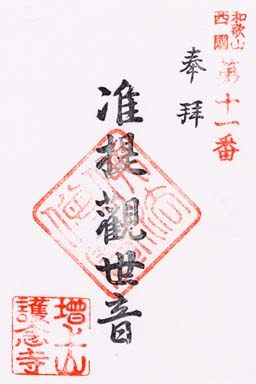 和歌山
西國
第十一番
奉拝
准提觀世音
増上山
護念寺